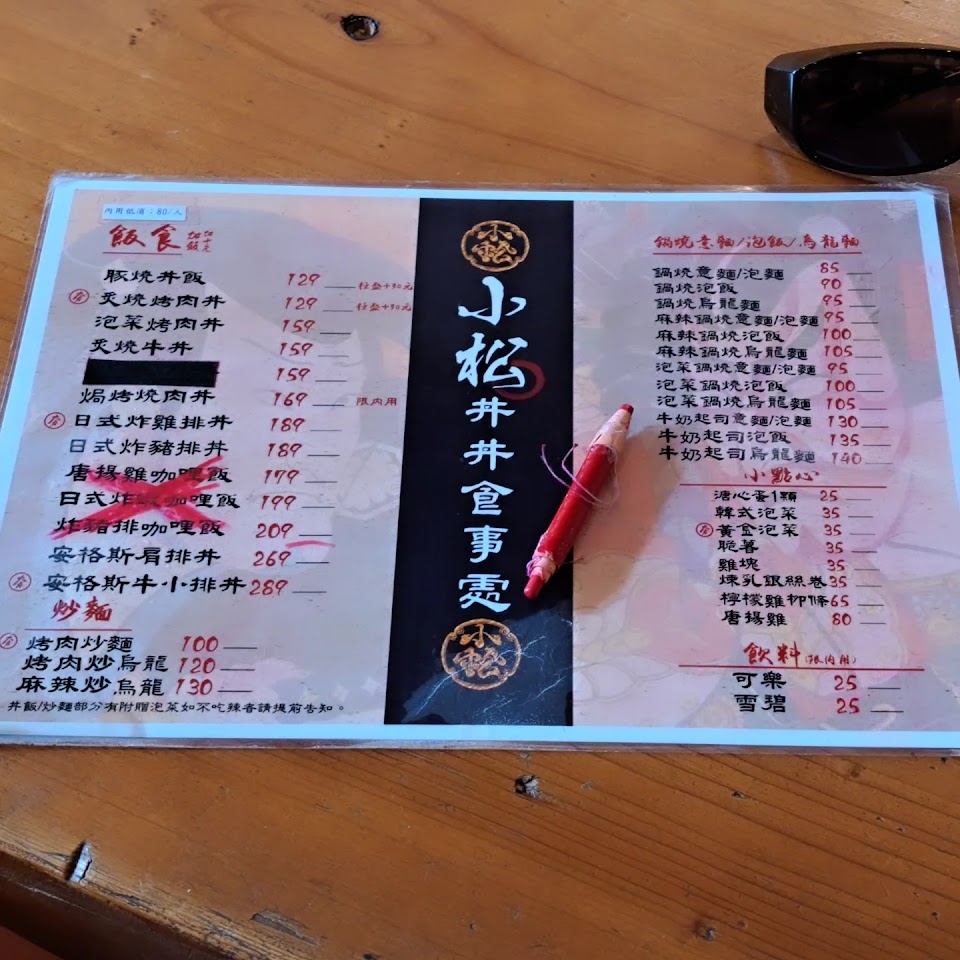 內用低消：80/人
飯食 加飯加十元
豚燒丼飯 129 便當+10元
炙燒烤肉丼 129
泡菜烤肉丼 159
炙燒牛丼 159
159
焗烤燒肉丼 169 限內用
日式炸雞排丼 189
日式炸豬排丼 189
唐揚雞咖哩飯 179
日式炸 咖哩飯 199
炸豬排咖哩飯 209
安格斯肩排丼 269
安格斯牛小排丼 289
炒麵
烤肉炒麵 100
烤肉炒烏龍 120
麻辣炒烏龍 130
丼飯/炒麵部分有附贈泡菜如不吃辣者請提前告知。
小松
小松丼丼食事處
小松
鍋燒意麵/泡飯/烏龍麵
鍋燒意麵/泡麵 85
鍋燒泡飯 90
鍋燒烏龍麵 95
麻辣鍋燒意麵/泡麵 95
麻辣鍋燒泡飯 100
麻辣鍋燒烏龍麵 105
泡菜鍋燒意麵/泡麵 95
泡菜鍋燒泡飯 100
泡菜鍋燒烏龍麵 105
牛奶起司意麵/泡麵 130
牛奶起司泡飯 135
牛奶起司烏龍麵 140
小點心
溏心蛋1顆 25
韓式泡菜 35
黃金泡菜 35
脆薯 35
雞塊 35
煉乳銀絲卷 35
檸檬雞柳條 65
唐揚雞 80
飲料(限內用)
可樂 25
雪碧 25